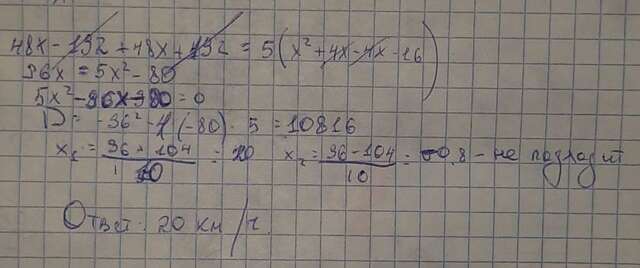 48x - 192 + 48x + 192 = 5(x² + 4x - 4x - 16)
96x = 5x² - 80
5x² - 96x - 80 = 0
D = -96² - 4(-80) · 5 = 10816
x₁ = 96 + 104 / 10 = 20 x₂ = 96 - 104 / 10 = -0.8 - не подходит
Ответ: 20 км/ч.